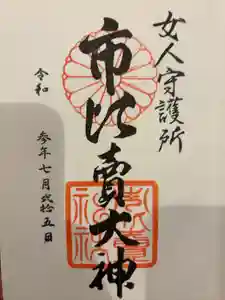 女人守護所
市比賣大神
令和
参年七月弐拾五日